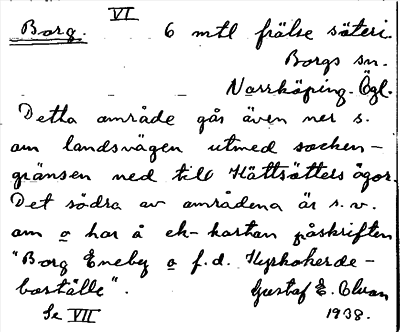 VI
Borg. 6 mtl frälse säteri.
Borgs sn.
Norrköping. Ögl.
Detta område går även ner s.
om landsvägen utmed socken-
gränsen ned till Hättsätters ägor.
Det södra av områdena är s.v.
om o har å ek-kartan påskriften
"Borg Eneby o f.d. Kyrkoherde-
boställe". Gustaf E. Elvan
Se VII 1938.